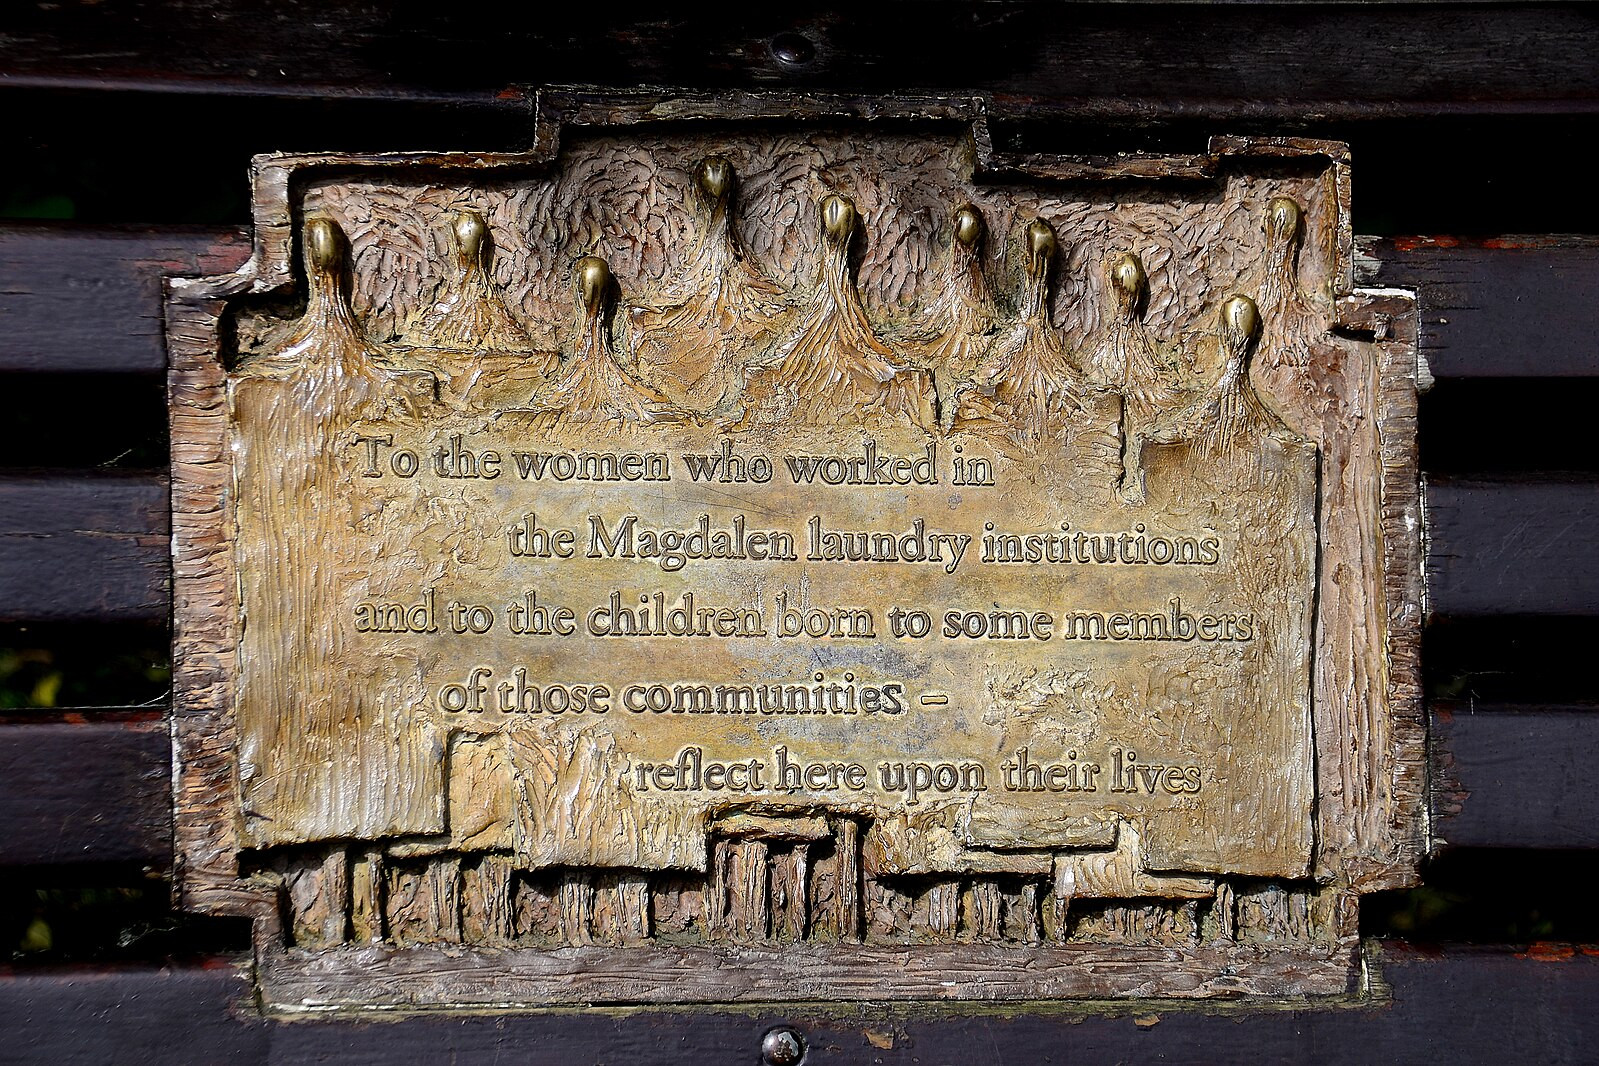 To the women who worked in
the Magdalen laundry institutions
and to the children born to some members
of those communities –
reflect here upon their lives